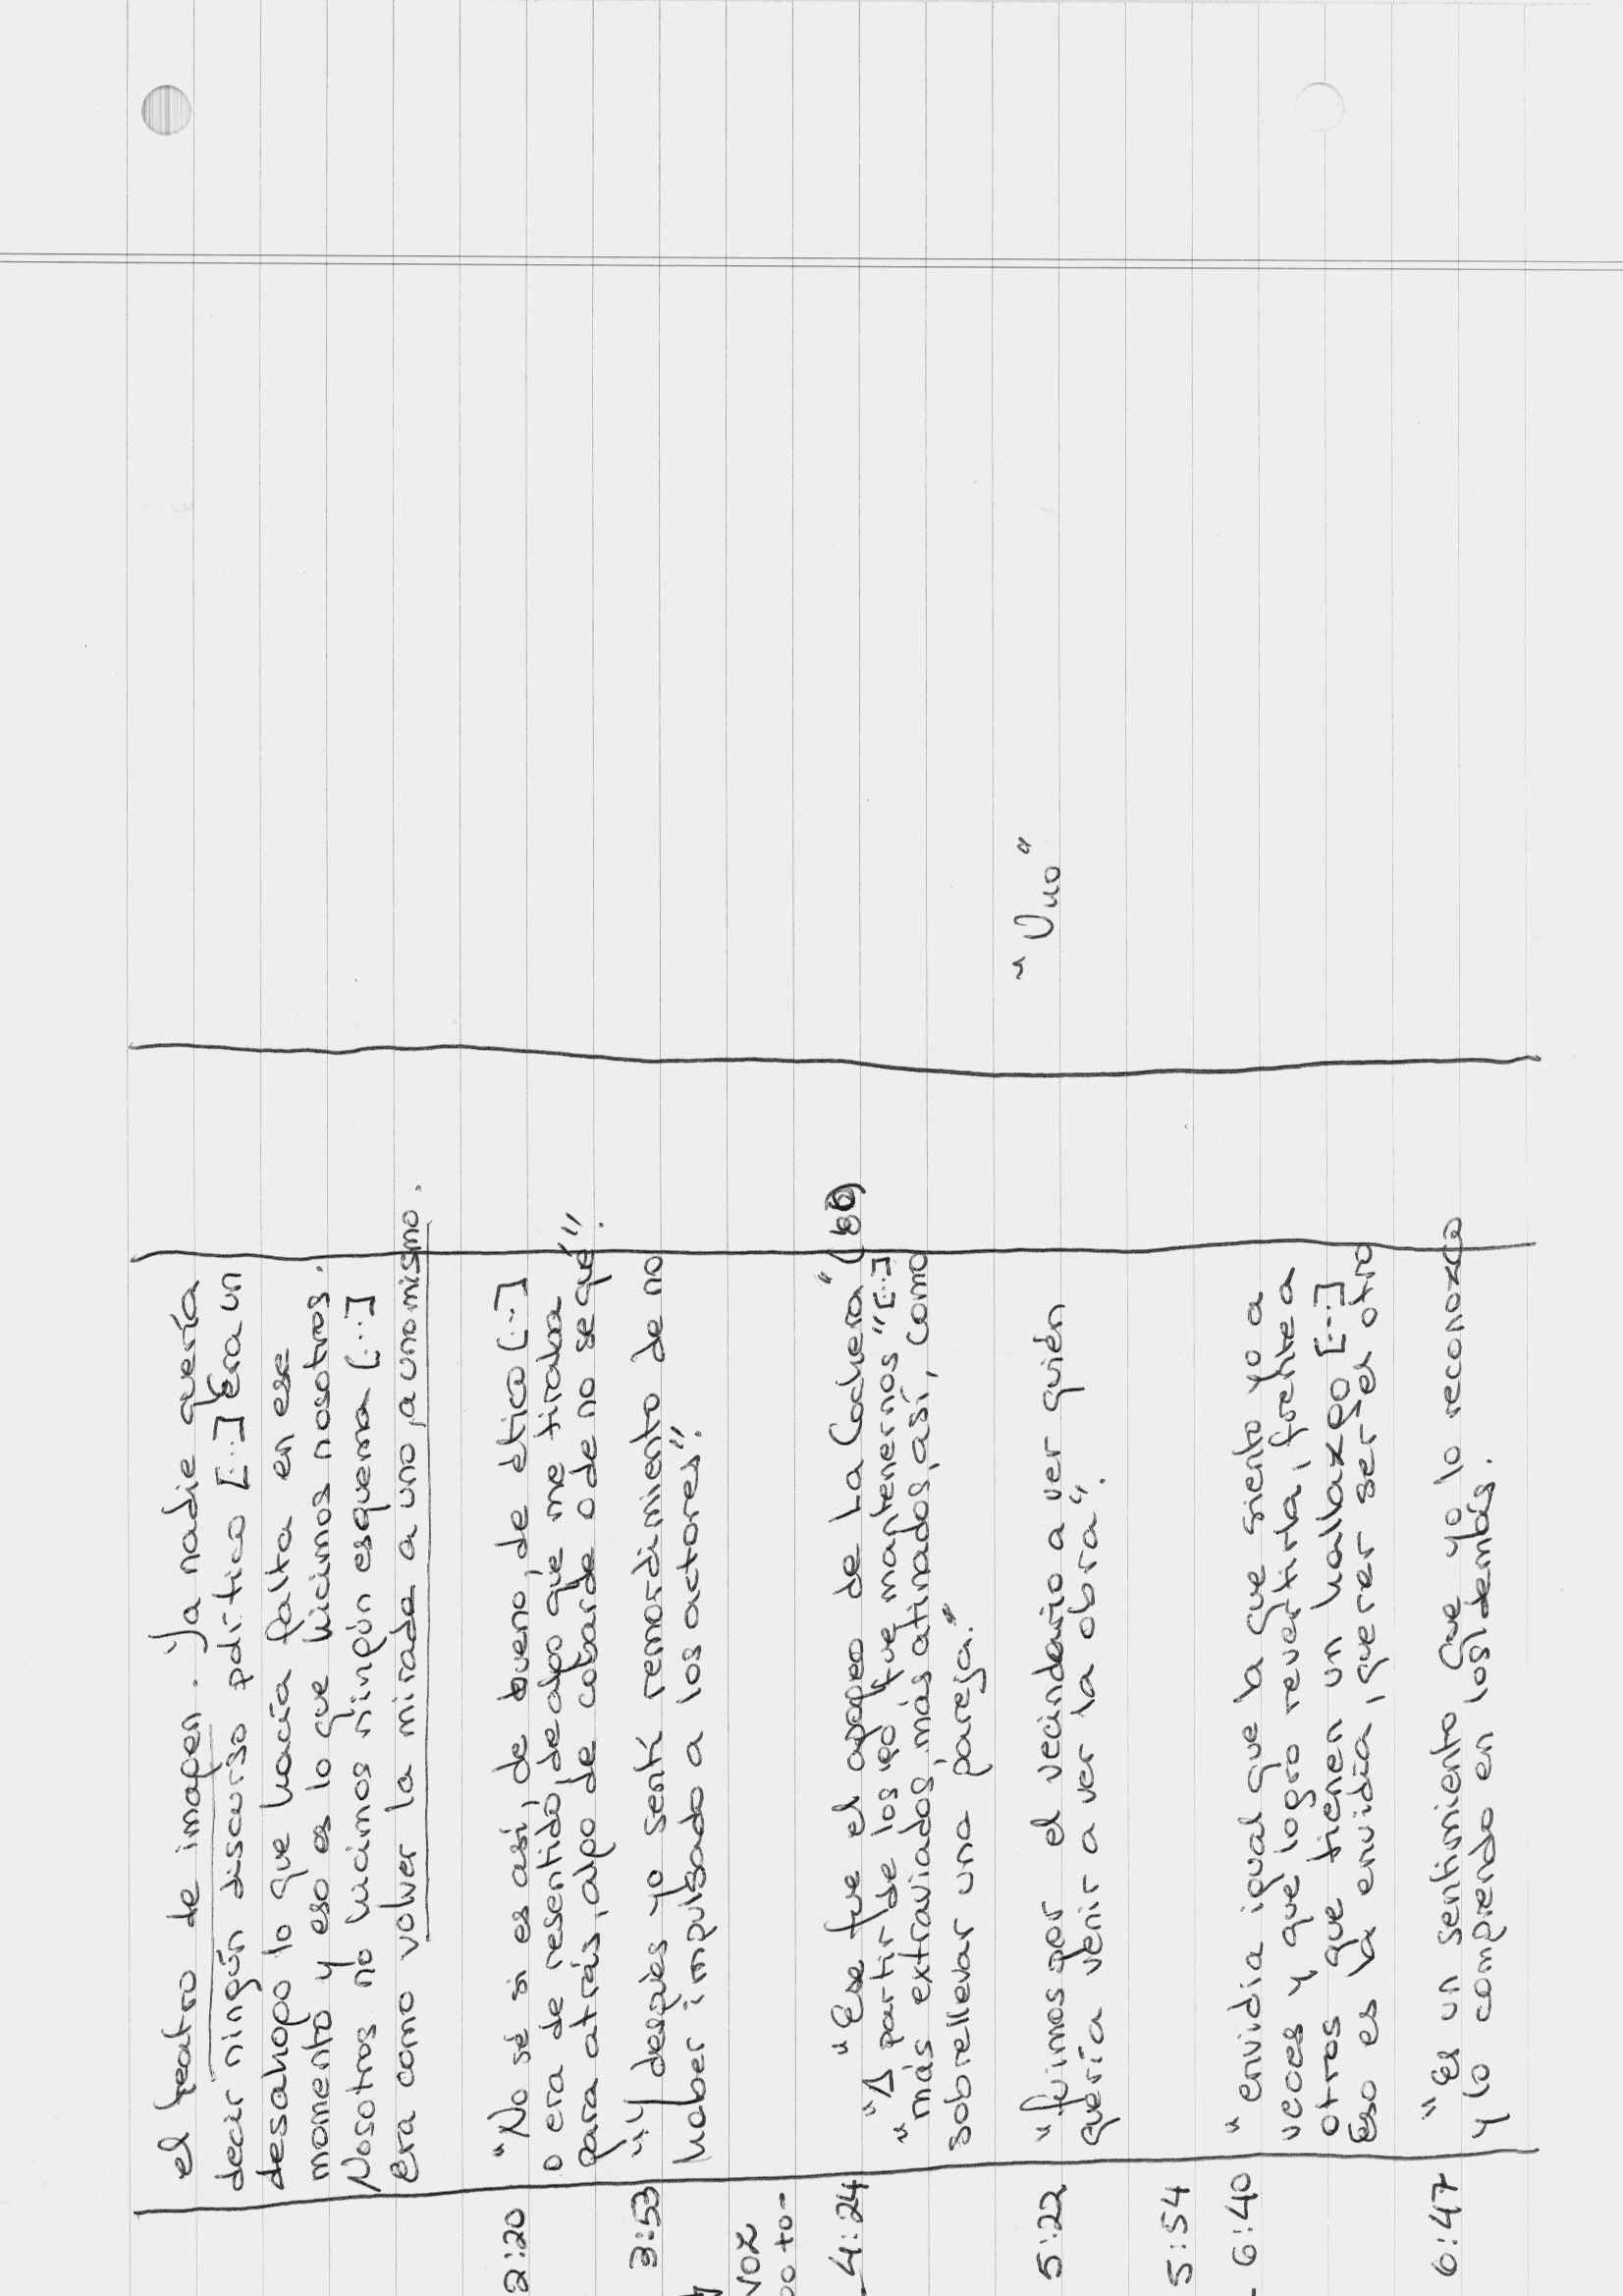 el teatro de imagen. Ya nadie quería
decir ningún discurso político [...] Era un
desahogo lo que hacía falta en ese
momento y eso es lo que hicimos nosotros.
Nosotros no hicimos ningún esquema [...]
era como volver la mirada a uno, a uno mismo.
2:20 "No sé si es así, de bueno, de ético [...]
o era de resentido, de algo que me tiraba
para atrás, algo de cobarde o de no se qué".
3:53 "Y después yo sentí remordimiento de no
haber impulsado a los actores".
voz
4:24 "Ese fue el apogeo de La Cochera" (80)
"A partir de los 80 fue mantenernos" [...]
"más extraviados, más atinados, así, como
sobrellevar una pareja."
5:22 "fuimos por el vecindario a ver quién
quería venir a ver la obra".
"Uno"
5:54
6:40 "envidia igual que la que siento yo a
veces y que logro revertirla, frente a
otros que tienen un hallazgo [...]
Eso es la envidia, querer ser el otro
6:47 "Es un sentimiento que yo lo reconozco
y lo comprendo en los demás.